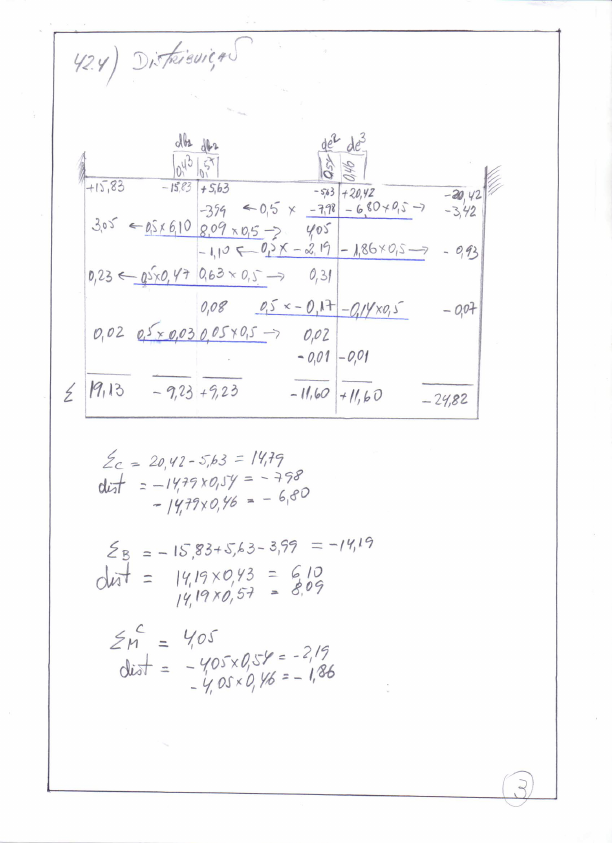 42.4) Distribuição
db1 db2 dc2 dc3
0,43 0,57 0,54 0,46
+15,83 -15,83 +5,63 -5,63 +20,42 -20,42
-3,99 ← 0,5 x -7,98 -6,80 x 0,5 → -3,42
3,05 ← 0,5 x 6,10 8,09 x 0,5 → 4,05
-1,10 ← 0,5 x -2,19 -1,86 x 0,5 → -0,93
0,23 ← 0,5 x 0,47 0,63 x 0,5 → 0,31
0,08 0,5 x -0,17 -0,14 x 0,5 -0,07
0,02 0,5 x 0,03 0,05 x 0,5 → 0,02
-0,01 -0,01
Σ 19,13 -9,23 +9,23 -11,60 +11,60 -24,82
Σc = 20,42 - 5,63 = 14,79
dist = -14,79 x 0,54 = -7,98
-14,79 x 0,46 = -6,80
ΣB = -15,83 + 5,63 - 3,99 = -14,19
dist = 14,19 x 0,43 = 6,10
14,19 x 0,57 = 8,09
ΣM^C = 4,05
dist = -4,05 x 0,54 = -2,19
-4,05 x 0,46 = -1,86
3